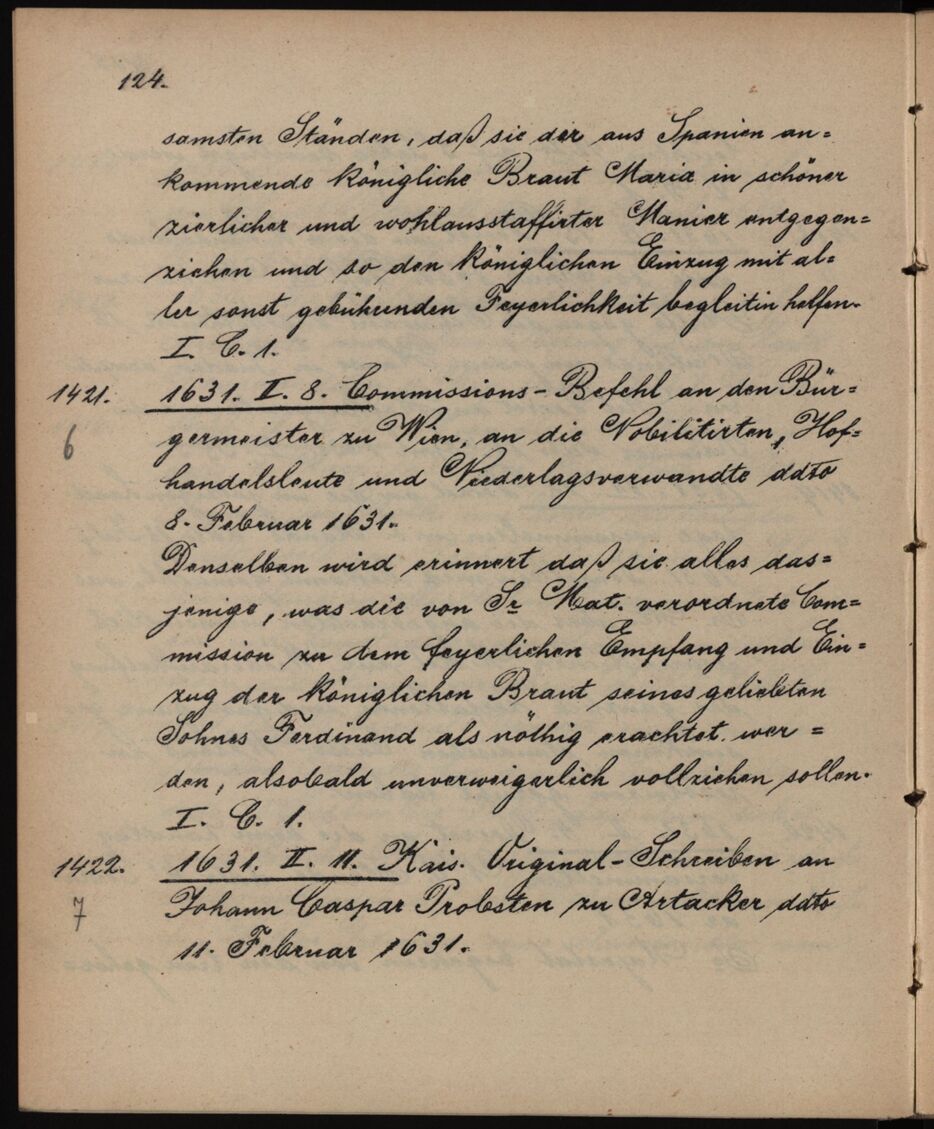 124.
samsten Ständen, daß sie der aus Spanien an=
kommende Königliche Braut Maria in schöner
zierlicher und wohlausstaffirter Manier entgegen=
ziehen und so den Königlichen Einzug mit al=
ler sonst gebührenden Feyerlichkeit begleitin helfen.
I. C. 1.
1421. 1631. II. 8. Commissions-Befehl an den Bür=
6 germeister zu Wien, an die Nobilitirten, Hof=
handelsleute und Niederlagsverwandte ddto
8. Februar 1631.
Denselben wird erinnert daß sie alles das=
jenige, was die von Sr Mat. verordnete Com=
mission zu dem feyerlichen Empfang und Ein=
zug der Königlichen Braut seines geliebten
Sohnes Ferdinand als nöthig erachtet wer=
den, alsobald unverweigerlich vollziehen sollen.
I. C. 1.
1422. 1631. II. 11. Kais. Original-Schreiben an
7 Johann Caspar Probsten zu Artacker ddto
11. Februar 1631.